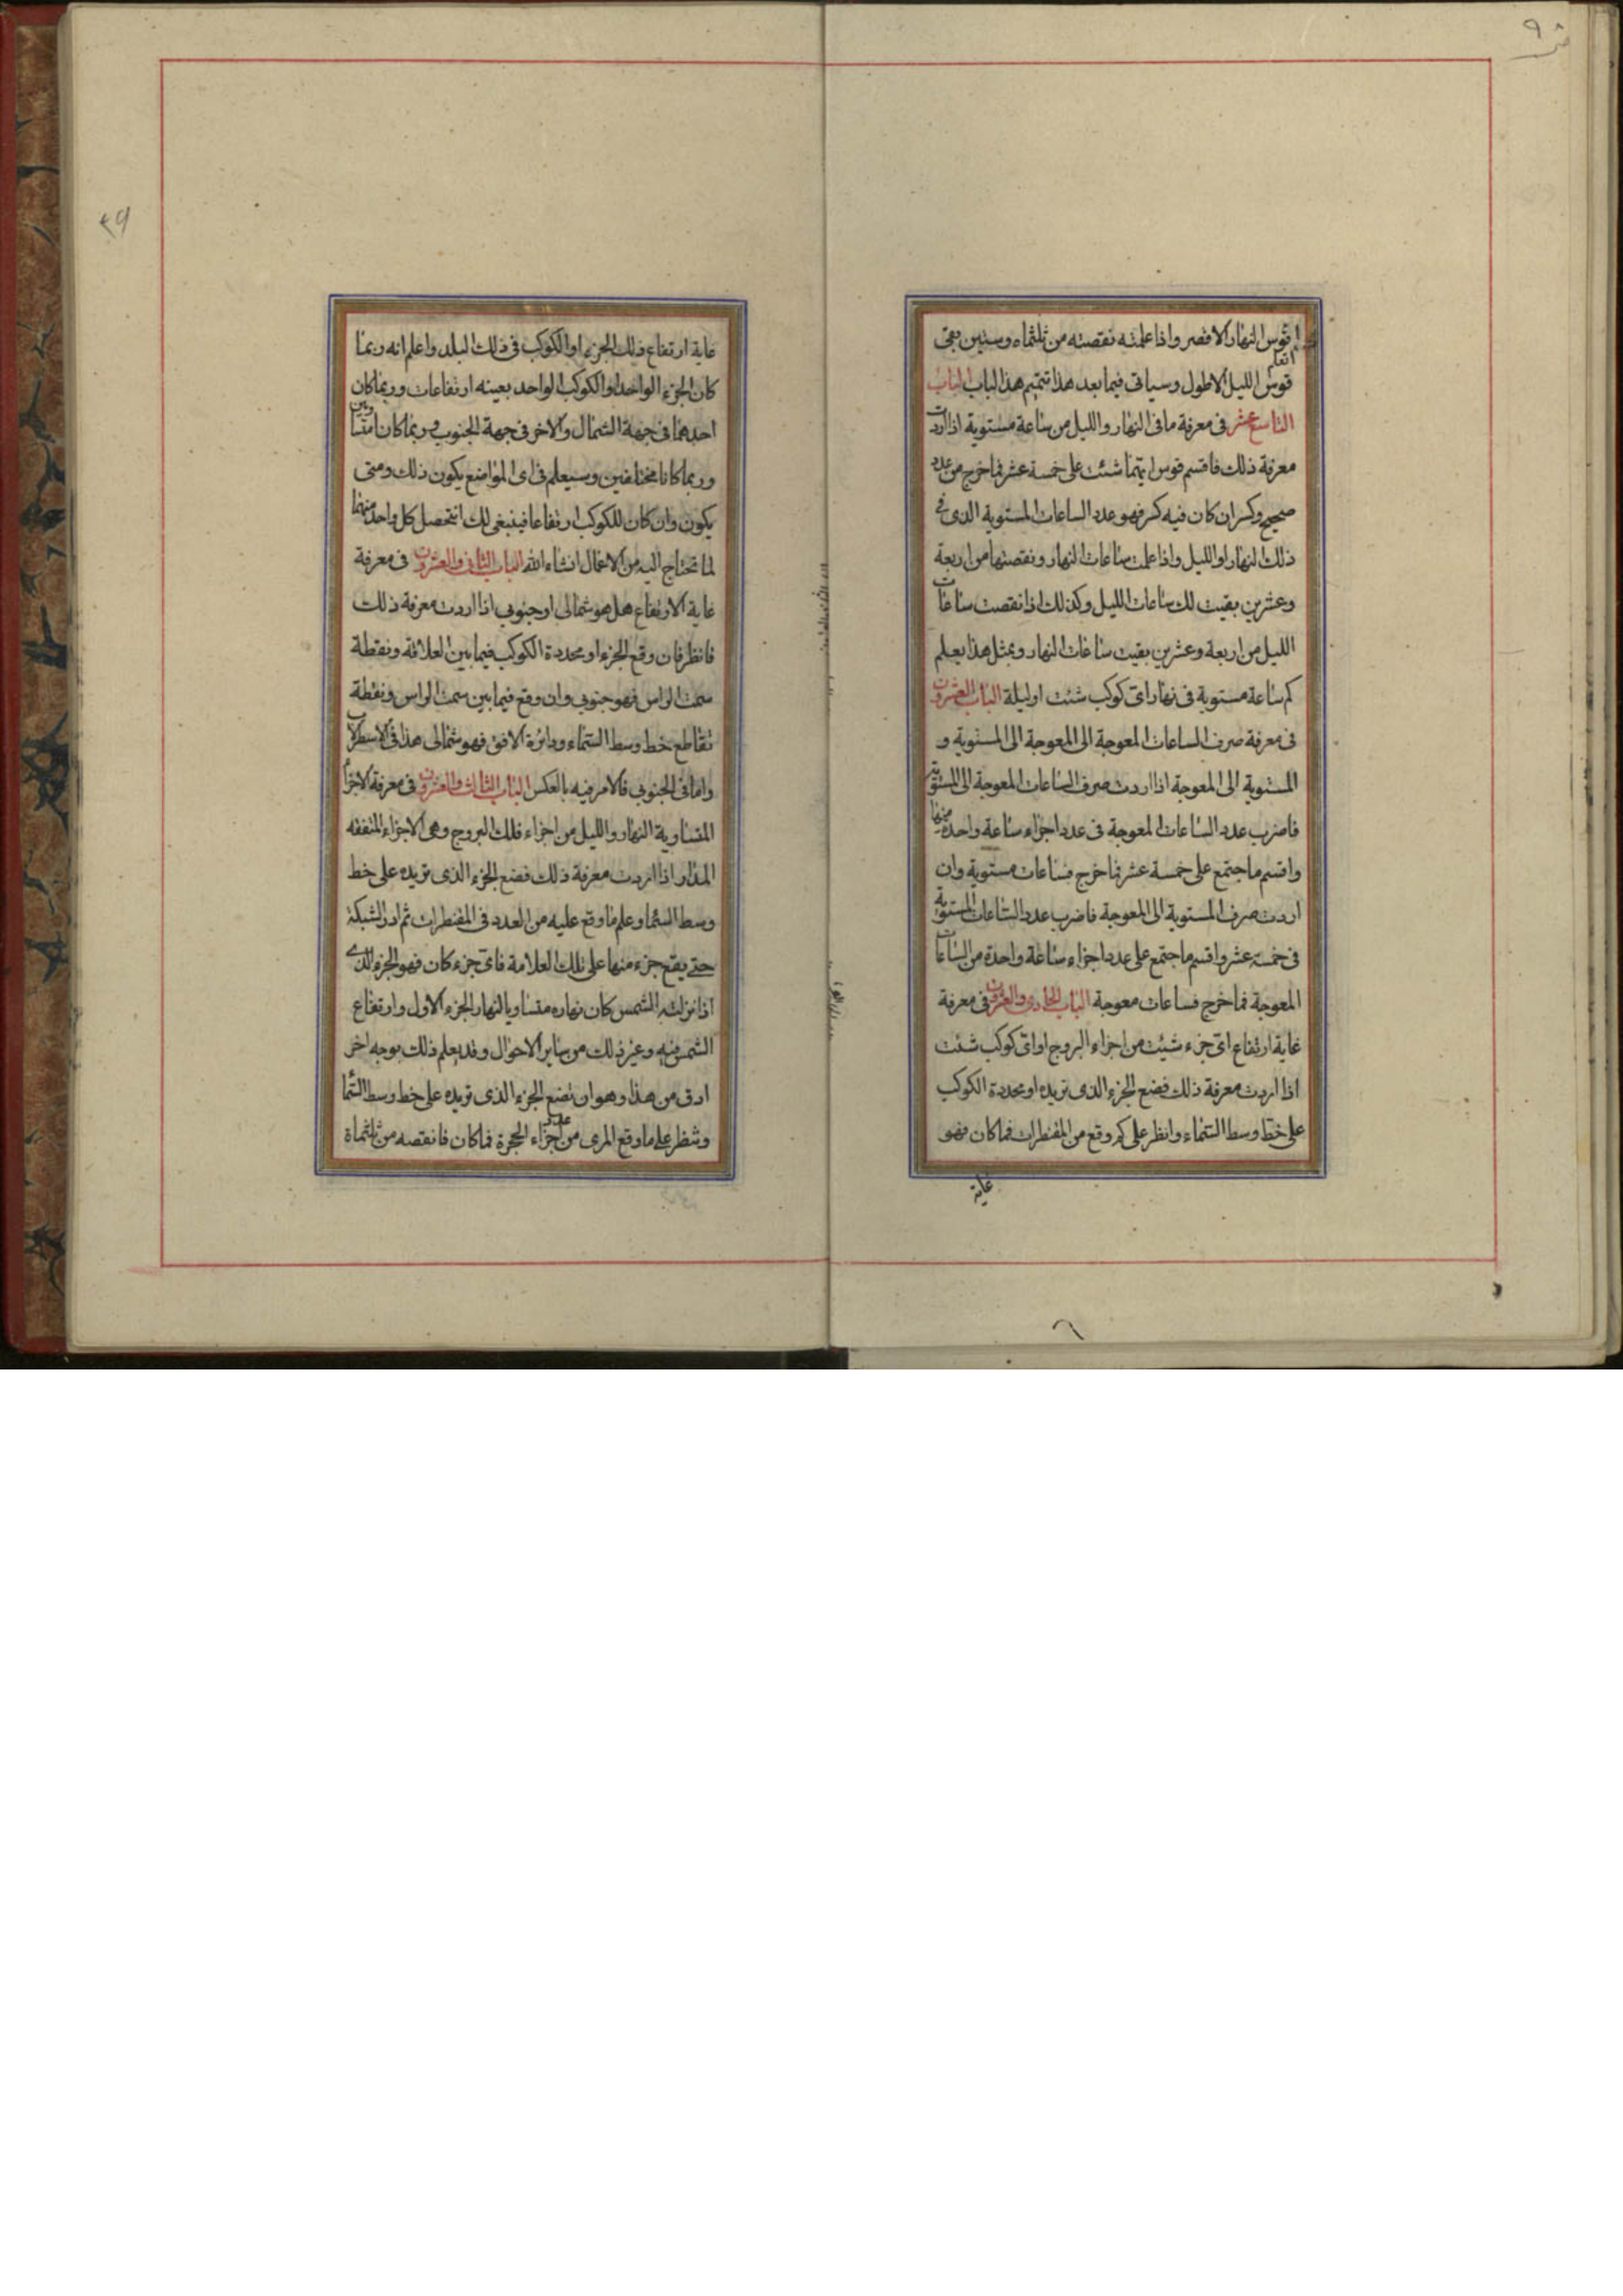 قوس النهار الاقصر واذا علمته نقصته من ثلثماه وستين بقى
قوس الليل الاطول وسياتى فيما بعد هذا تتميم هذا الباب الباب
التاسع عشر فى معرفة ما فى النهار والليل من ساعة مستوية اذا اردت
معرفة ذلك فاقسم قوس ايتهما شئت على خمسة عشر فما خرج من عدد
صحيح وكسر ان كان فيه كسر فهو عدد الساعات المستوية الذى فى
ذلك النهار او الليل واذا علمت ساعات النهار ونقصتها من اربعة
وعشرين بقيت لك ساعات الليل وكذلك اذا نقصت ساعات
الليل من اربعة وعشرين بقيت ساعات النهار وبمثل هذا يعلم
كم ساعة مستوية فى نهار اى كوكب شئت او ليلة الباب العشرون
فى معرفة صرف الساعات المعوجة الى المعوجة الى المستوية و
المستوية الى المعوجة اذا اردت صرف الساعات المعوجة الى المستوية
فاضرب عدد الساعات المعوجة فى عدد اجزاء ساعة واحدة منها
واقسم ما اجتمع على خمسة عشر فما خرج فساعات مستوية وان
اردت صرف المستوية الى المعوجة فاضرب عدد الساعات المستوية
فى خمسة عشر واقسم ما اجتمع على عدد اجزاء ساعة واحدة من الساعات
المعوجة فما خرج فساعات معوجة الباب الحادى والعشرون فى معرفة
غاية ارتفاع اى جزء شئت من اجزاء البروج او اى كوكب شئت
اذا اردت معرفة ذلك فضع الجزء الذى تريده او محددة الكوكب
على خط وسط السماء وانظر على كم وقع من المقنطرات فما كان فهو
غاية
غاية ارتفاع ذلك الجزء او الكوكب فى ذلك البلد واعلم انه ربما
كان الجزء الواحد او الكوكب الواحد بعينه ارتفاعات وربما كان
احدهما فى جهة الشمال والاخر فى جهة الجنوب وربما كانا متساويين
وربما كانا مختلفين وسيعلم فى اى المواضع يكون ذلك ومتى
يكون وان كان للكوكب ارتفاعا فينبغى لك ان تحصل كل واحد منهما
لما تحتاج اليه من الاعمال انشاء الله الباب الثانى والعشرون فى معرفة
غاية الارتفاع هل هو شمالى او جنوبى اذا اردت معرفة ذلك
فانظر فان وقع الجزء او محددة الكوكب فيما بين العلاقة ونقطة
سمت الراس فهو جنوبى وان وقع فيما بين سمت الراس ونقطة
تقاطع خط وسط السماء ودائرة الافق فهو شمالى هذا فى الاسطرلاب
واما فى الجنوبى فالامر فيه بالعكس الباب الثالث والعشرون فى معرفة الاجزاء
المتساوية النهار والليل من اجزاء فلك البروج وهى الاجزاء المتفقه
المدار اذا اردت معرفة ذلك فضع الجزء الذى تريده على خط
وسط السماء وعلم ما وقع عليه من العدد فى المقنطرات ثم ادر الشبكة
حتى يقع جزء منها على تلك العلامة فاى جزء كان فهو الجزء الذى
اذا نزلته الشمس كان نهاره متساويا لنهار الجزء الاول وارتفاع
الشمس فيه وغير ذلك من ساير الاحوال وقد يعلم ذلك بوجه اخر
ادق من هذا وهو ان تضع الجزء الذى تريده على خط وسط السماء
وتنظر على ما وقع المرى من عدد اجزاء الحجرة فما كان فانقصه من ثلثماة